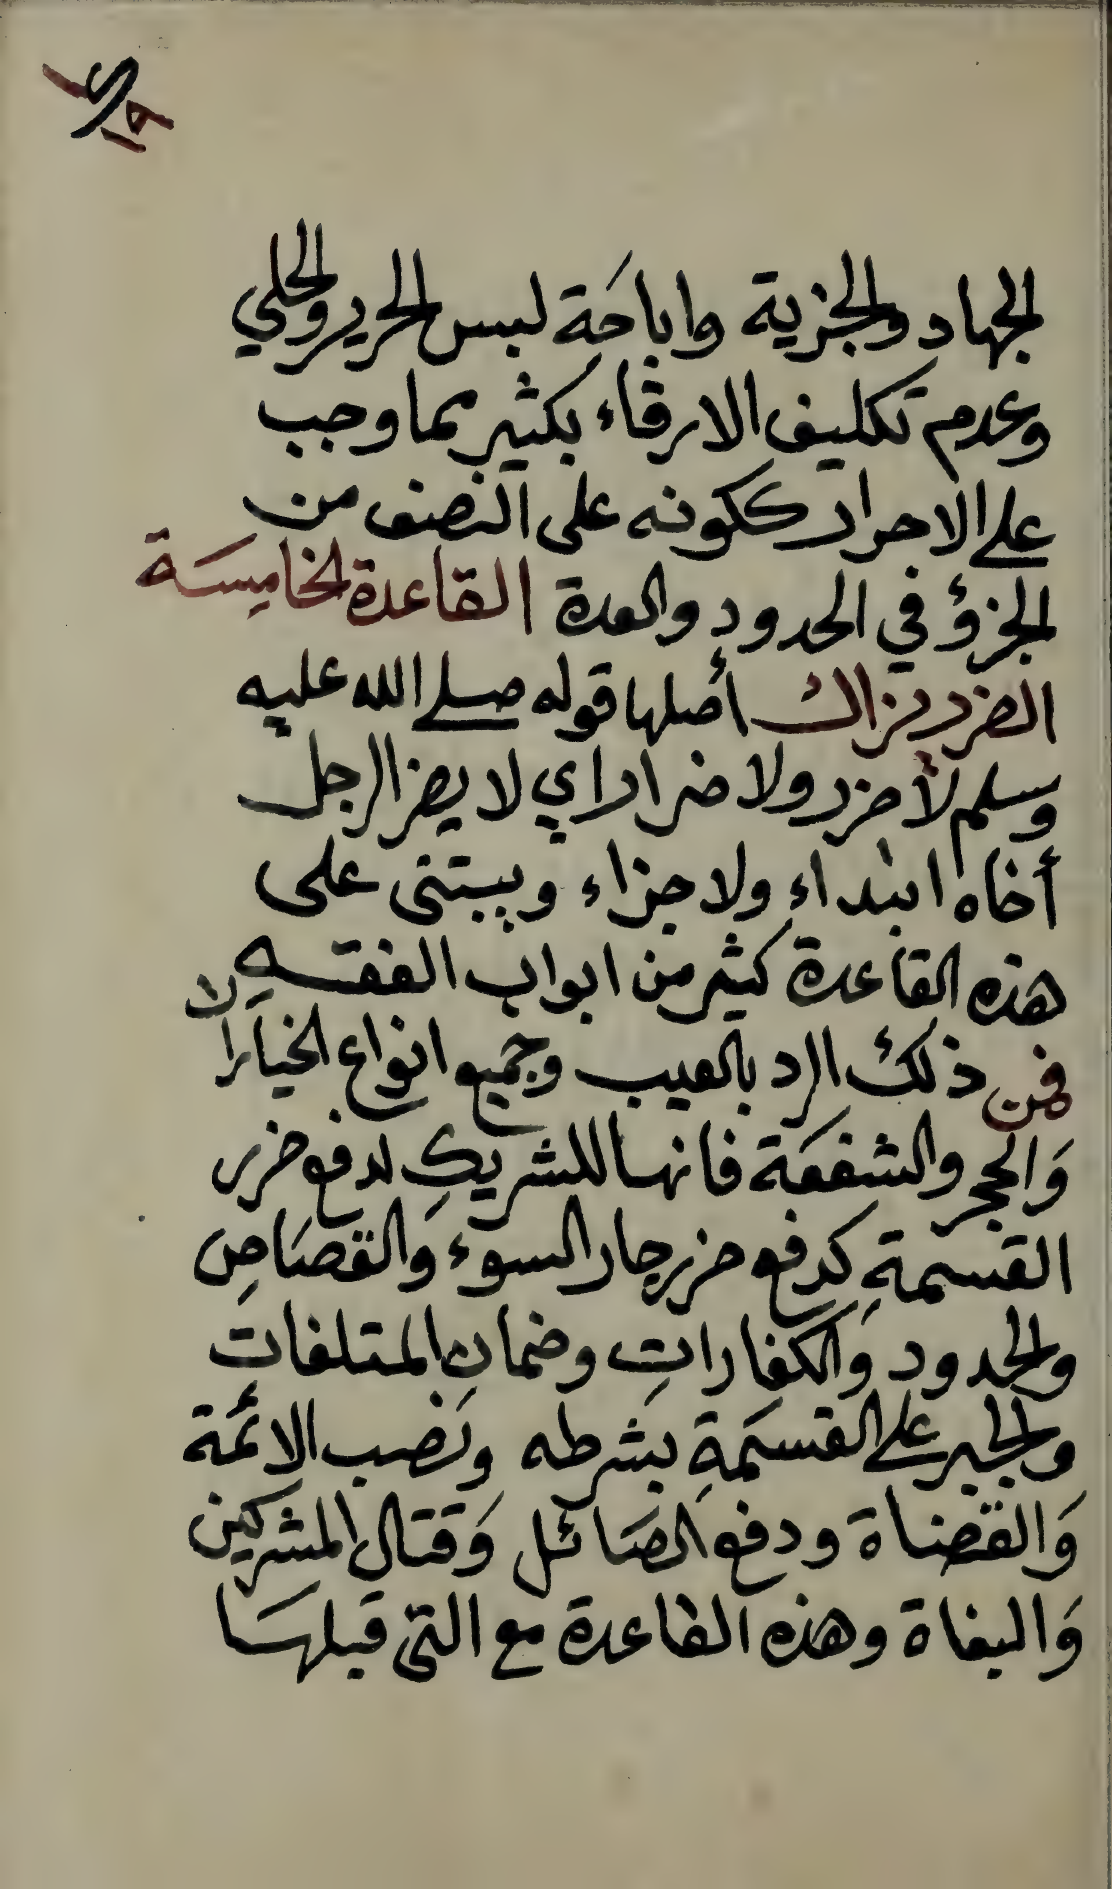 الجهاد والجزية واباحَة لبس الحرير والحلي
وعدم تكليف الارقاء بكثير مما وجب
على الاحرار ككونه على النصف من
الجزؤ في الحدود والعدة القاعدة الخامِسَة
الضرر يزال أصلها قوله صلى الله عليه
وسلم لا ضرر ولا ضرار اي لا يضر الرجل
أخاه ابتداء ولا جزاء ويبتنى على
هذه القاعدة كثير من ابواب الفقه
فمن ذلك الرد بالعيب وجميع انواع الخيارات
وَالحجر والشفعَة فانها للشريكِ لدفع ضرر
القسمةِ كدفع ضرر جار السوء وَالقصَاصِ
والحدود وَالكفاراتِ وضمانِ المتلفاتِ
والجبر على القسمَةِ بشرطه ونصب الائمة
وَالقضاة ودفع الصَائل وَقتال المشركين
وَالبغاة وهذه القاعدة مع التى قبلهَا